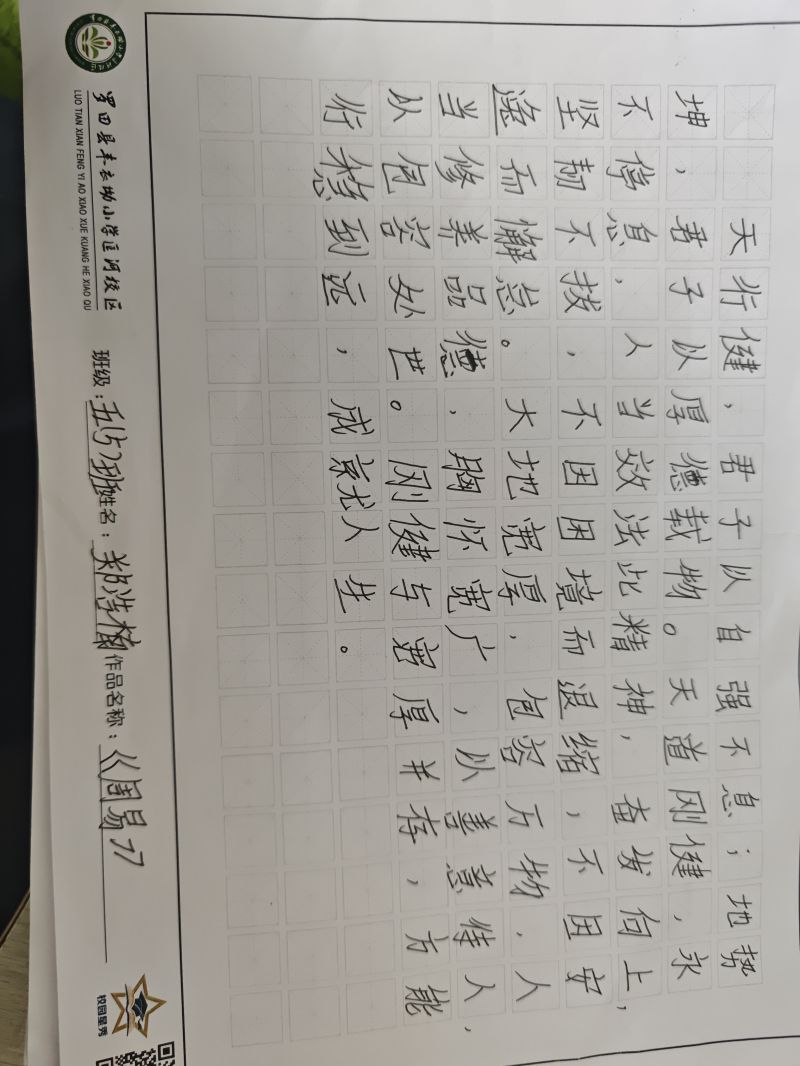 天行健，君子以自强不息；地势
坤，君子以厚德载物。天道刚健，永
不停息，人当效法此精神，奋发向上，
坚韧不拔，不因困境而退缩，不因安
逸而懈怠。大地宽厚，包容万物，人
当修养品德，胸怀宽广，以善意待人，
以包容处世。刚健与宽厚并存，方能
行稳到远，成就人生。
罗田县丰衣坳小学匡河校区
LUO TIAN XIAN FENG YI AO XIAO XUE KUANG HE XIAO QU
班级：五(5)班 姓名：郑浩楠 作品名称：《周易》
校园星秀